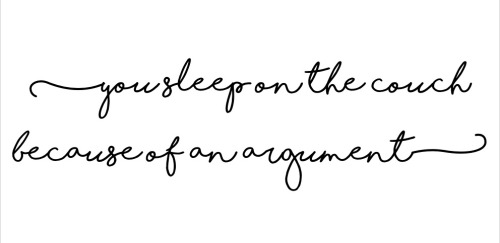 you sleep on the couch
because of an argument